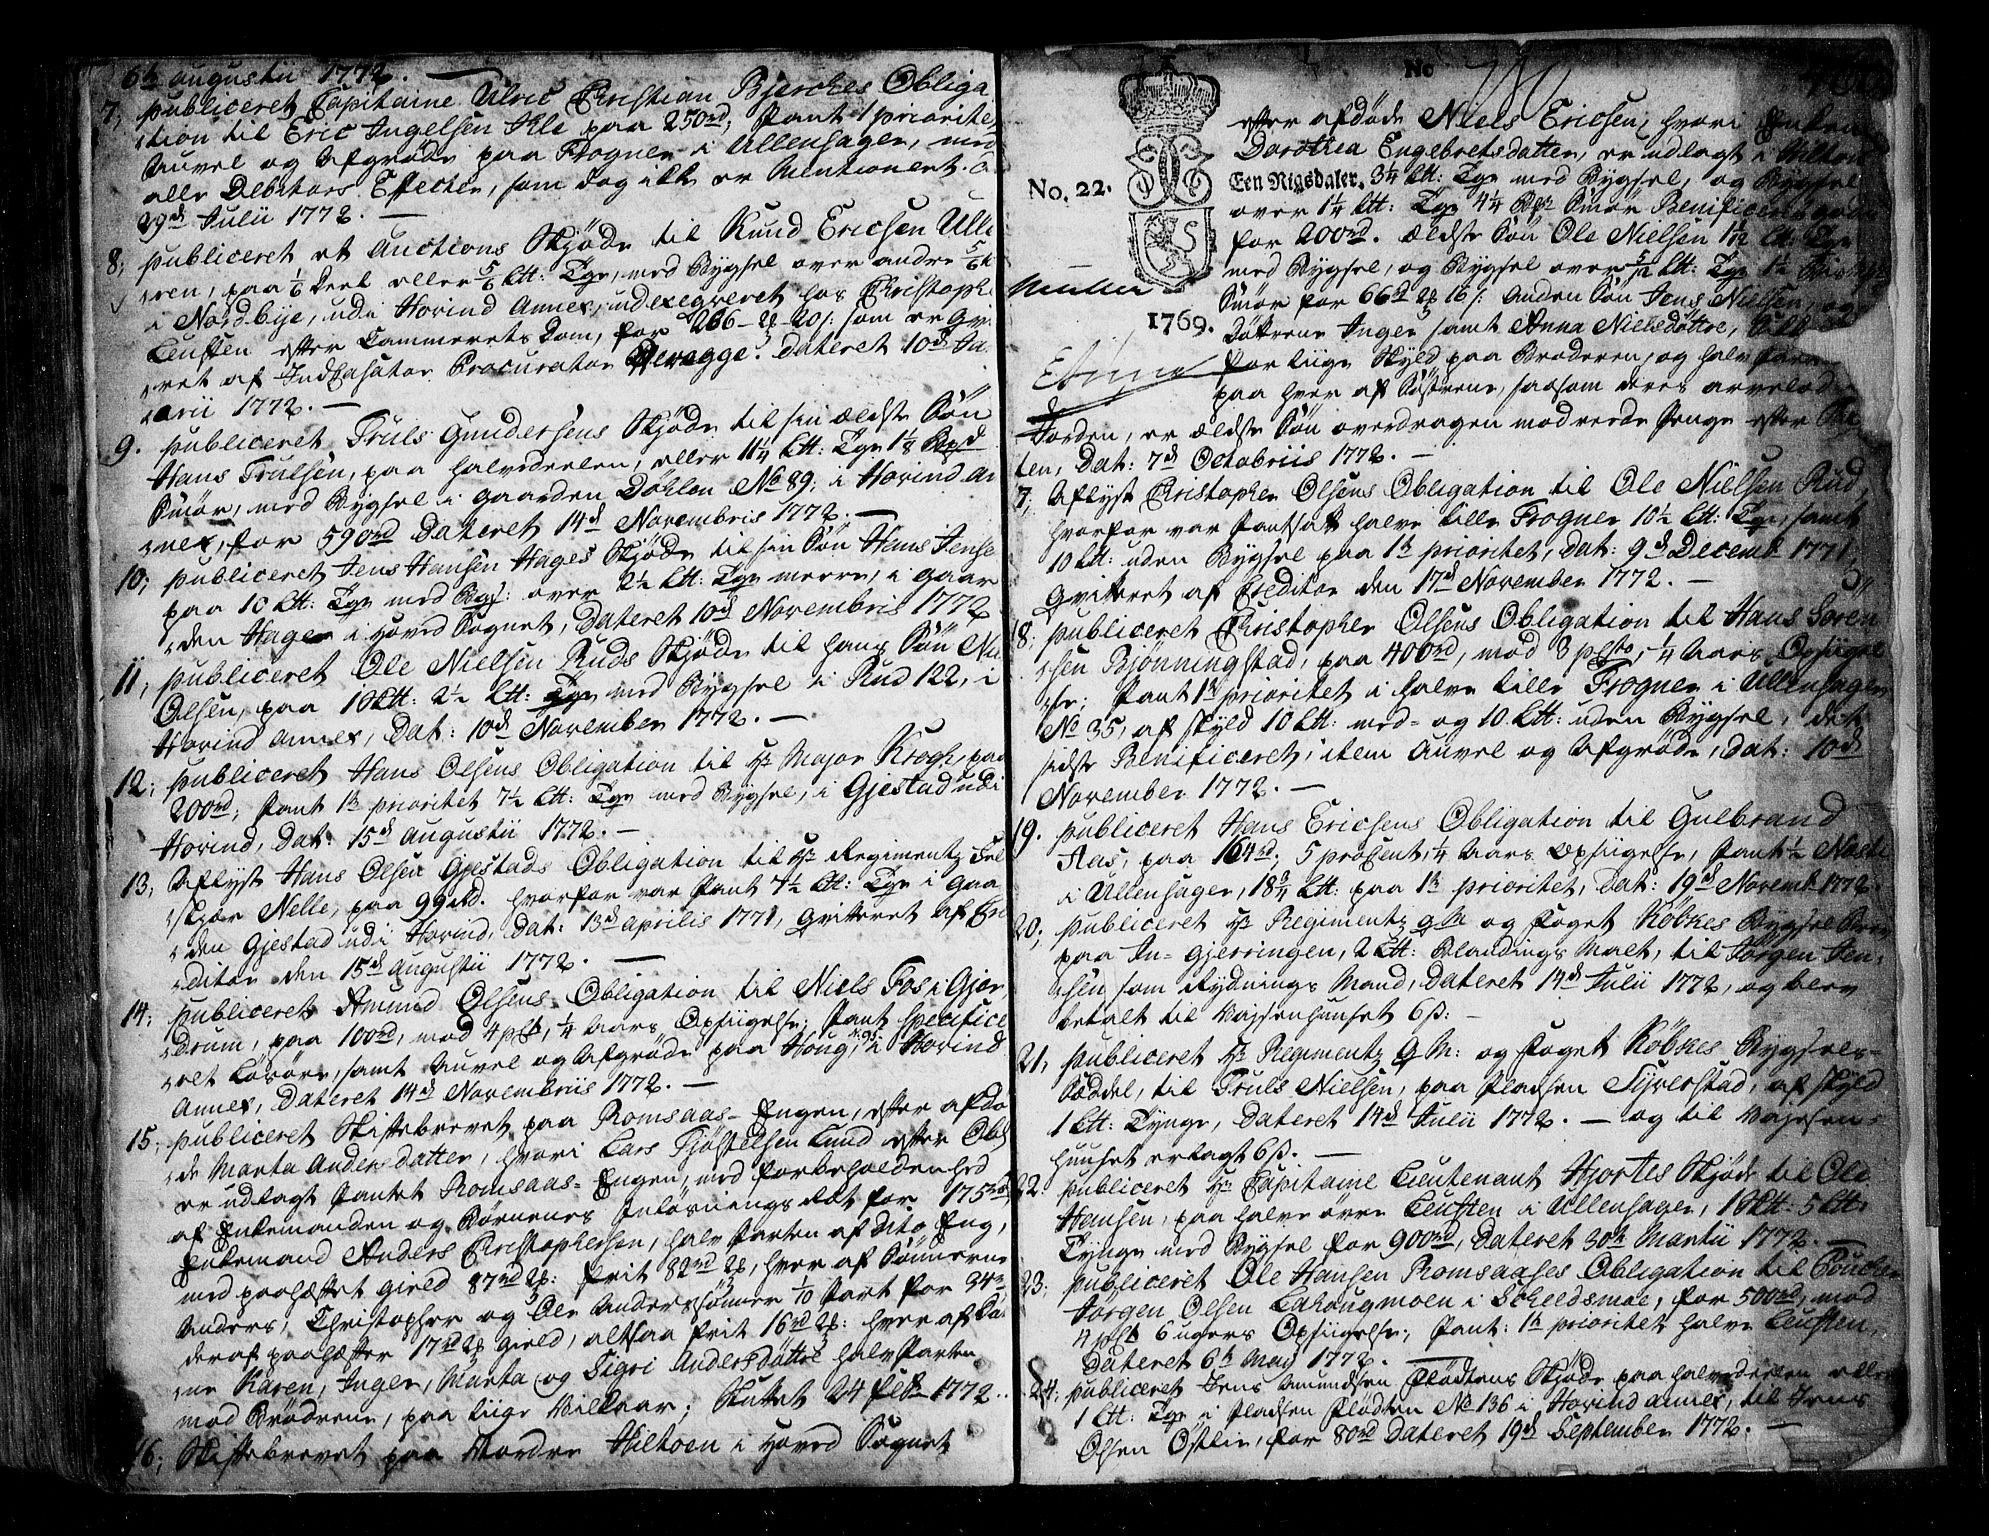 6th augustii 1772. —
7, publiceret Capitaine Ulric Christian Bjerckes Obliga
tion til Eric Ingelsen Kle paa 250rd, Pant 1 prioritet
Auvel og Afgrøde paa Frogner i Ullensager, med
alle Debitors Effecter, som dog ikke er Mentioneret.
29de Julii 1772. —
8, publiceret et Auctions Skjøde til Knud Ericsen Ulle
ren, paa 1/6 deel eller 5/6 Ltt: Tge, med Bygsel over andre 5/6
i Nordbye, udi Hovind Annex, udexeqveret hos Christoph
Leusten efter Cammerets Dom, for 266-28-20s: som er qv
ret af Indcasator Procurator Devegge. Dateret 10de Ja
arii 1772. —
9. publiceret Truls Gundersens Skjøde til sin ældste Søn
Hans Trulsen, paa halvdeelen, eller 11¼ Ltt: Tge 1⅛ Bpd
Smør, med Bygsel i gaarden Dohlen No 89, i Hovind An
nex, for 590rd Dateret 14de Novembris 1772. —
10, publiceret Jens Hansen Hages Skjøde til sin Søn Hans Jense
paa 10 Ltt: Tge med Bygs: over 2½ Ltt: Tge meere, i gaar
den Hager i Hoved Sognet, Dateret 10de Novembris 1772
11, publiceret Ole Nielsen Ruds Skjøde til hans Søn Nie
Olsen, paa 1 Ltt: 2½ Ltt: Tge med Bygsel i Rud 122, i
Hovind Annex, Dat: 10de November 1772. —
12, publiceret Hans Olsens Obligation til Hr Major Krogh, paa
200rd, Pant 1te prioritet 7½ Ltt: Tge med Bygsel, i Gjestad udi
Hovind, Dat: 15de augustii 1772. —
13, Aflyst Hans Olsen Gjestads Obligation til Hr Regimentz Fel
skjær Nelle, paa 99rd. hvorfor var Pant 7½ Ltt: Tge i Gaa
den Gjestad udi Hovind, Dat: 13de aprilis 1771, Qvitteret af Cre
ditor den 15de augustii 1772. —
14, publiceret Amund Olsens Obligation til Niels Fos i Gjer
drum, paa 100rd, med 4 pCt, ¼ Aars Opsiigelse, Pant specifice
ret Løsøre, samt Auvel og Afgrøde paa Houg, i Hovind
Annex, Dateret 14de Novembriis 1772. —
15, publiceret Skiftebrevet paa Romsaas-Engen, efter afdø
de Marta Andersdatter, hvori Lars Kjøstelsen Lund efter
er udlagt Pantet Romsaas-Engen, med forbeholdenhed
af Enkemanden og Børnenes Indløsnings Ræt for 175rd
Enkemand Anders Christophersen, halv Parten af dito Eng,
med paahæftet gield 87rd 2s: frit 82rd 2s, hver af Sønnerne
Anders, Christopher og Ole Anderssønner 1/10 Part for 34rd
deraf paahæfter 17rd 2s gield, altsaa frit 16rd 2s: hver af Dø
ne Karen, Inger, Marta og Sigri Andersdøttre halv Parten
mod Brødrene, paa liige Vilkaar; Sluttet 24 Febr 1772.
16, Skiftebrevet paa Nordre Hiltoen i Hoved Sognet
No
No. 22.
Een Rigsdaler.
1769.
Müller
efter afdøde Niels Ericsen, hvori Enken
Dorothea Engebretsdatter, er udlagt i Hilton
3¼ Ltt: Tge med Bygsel, og Bygsel
over 1¼ Ltt: Tge 4¼ Bpd Smør Benificeret gods
for 200rd. Ældste Søn Ole Nielsen 1 1/12 Ltt: Tge
med Bygsel, og Bygsel over 5/12 Ltt: Tge 1½
Smør for 66rd 2s 16s: Anden Søn Jens Nielsen, og
Døttrene Inger samt Anna Nielsdøttre,
for liige Skyld paa Broderen, og halv Parten
paa hver af Søstrene, saasom deres arvelod i
Jorden, er ældste Søn overdragen mod reede Penge efter
ten, Dat: 7de Octobriis 1772. —
7, Aflyst Christopher Olsens Obligation til Ole Nielsen Rud,
hvorfor var Pantsat halve lille Frogner 10½ Ltt: Tge, samt
10 Ltt: uden Bygsel paa 1te prioritet, Dat: 9de Decemb: 1771,
Qvitteret af Creditor den 17de November 1772. —
18, publiceret Christopher Olsens Obligation til Hans Soren
sen Bjønningstad, paa 400rd, mod 3 pCto, ¼ Aars Opsigel
se; Pant 1te prioritet i halve lille Frogner i Ullensager
No 35, af skyld 10 Ltt: med- og 10 Ltt: uden Bygsel, det
sidste Benificeret, item Auvel og Afgrøde, Dat: 10de
November 1772. —
19. publiceret Hans Ericsens Obligation til Gulbrand
Aas, paa 164rd. 5 proCent, ¼ Aars Opsiigelse, Pant ½
i Ullensager, 18¾ Ltt: paa 1te prioritet, Dat: 19de Novemb: 1772.
20, publiceret Hr Regimentz Q M og Foget Købkes Bygsel Brev
paa In-Gjerringen, 2 Ltt: Blandings Malt, til Jørgen Jen
sen som Rydnings Mand, Dateret 14de Julii 1772, og blev
betalt til Vajsenhuuset 6s: —
21, publiceret Hr Regimentz Q M: og Foget Købkes Bygsel-
Seddel, til Truls Nielsen, paa Pladsen Syverstad, af skyld
1 Ltt: Tynge, Dateret 14de Julii 1772. — og til Vajsen-
huuset erlagt 6s. —
22. publiceret Hr Capitaine Lieutenant Hjortes Skjøde til Ole
Hansen, paa halve øvre Leusten i Ullensager, 1 Ltt: 5 Ltt:
Tynge med Bygsel for 900rd, Dateret 30te Martii 1772. —
23, publiceret Ole Hansen Romsaases Obligation til
Jørgen Olsen Lahaugmoen i Scheedsmoe, for 500rd, mod
4 pCt 6 ugers Opsiigelse, Pant: 1te prioritet halve Leusten,
Dateret 6te May 1772. —
24, publiceret Jens Amundsen Fladtens Skjøde paa halvdeelen eller
1 Ltt: Tge i Pladsen Fladten No 136 i Hovind Annex, til Jens
Olsen Østlie, for 80rd Dateret 19de September 1772. —